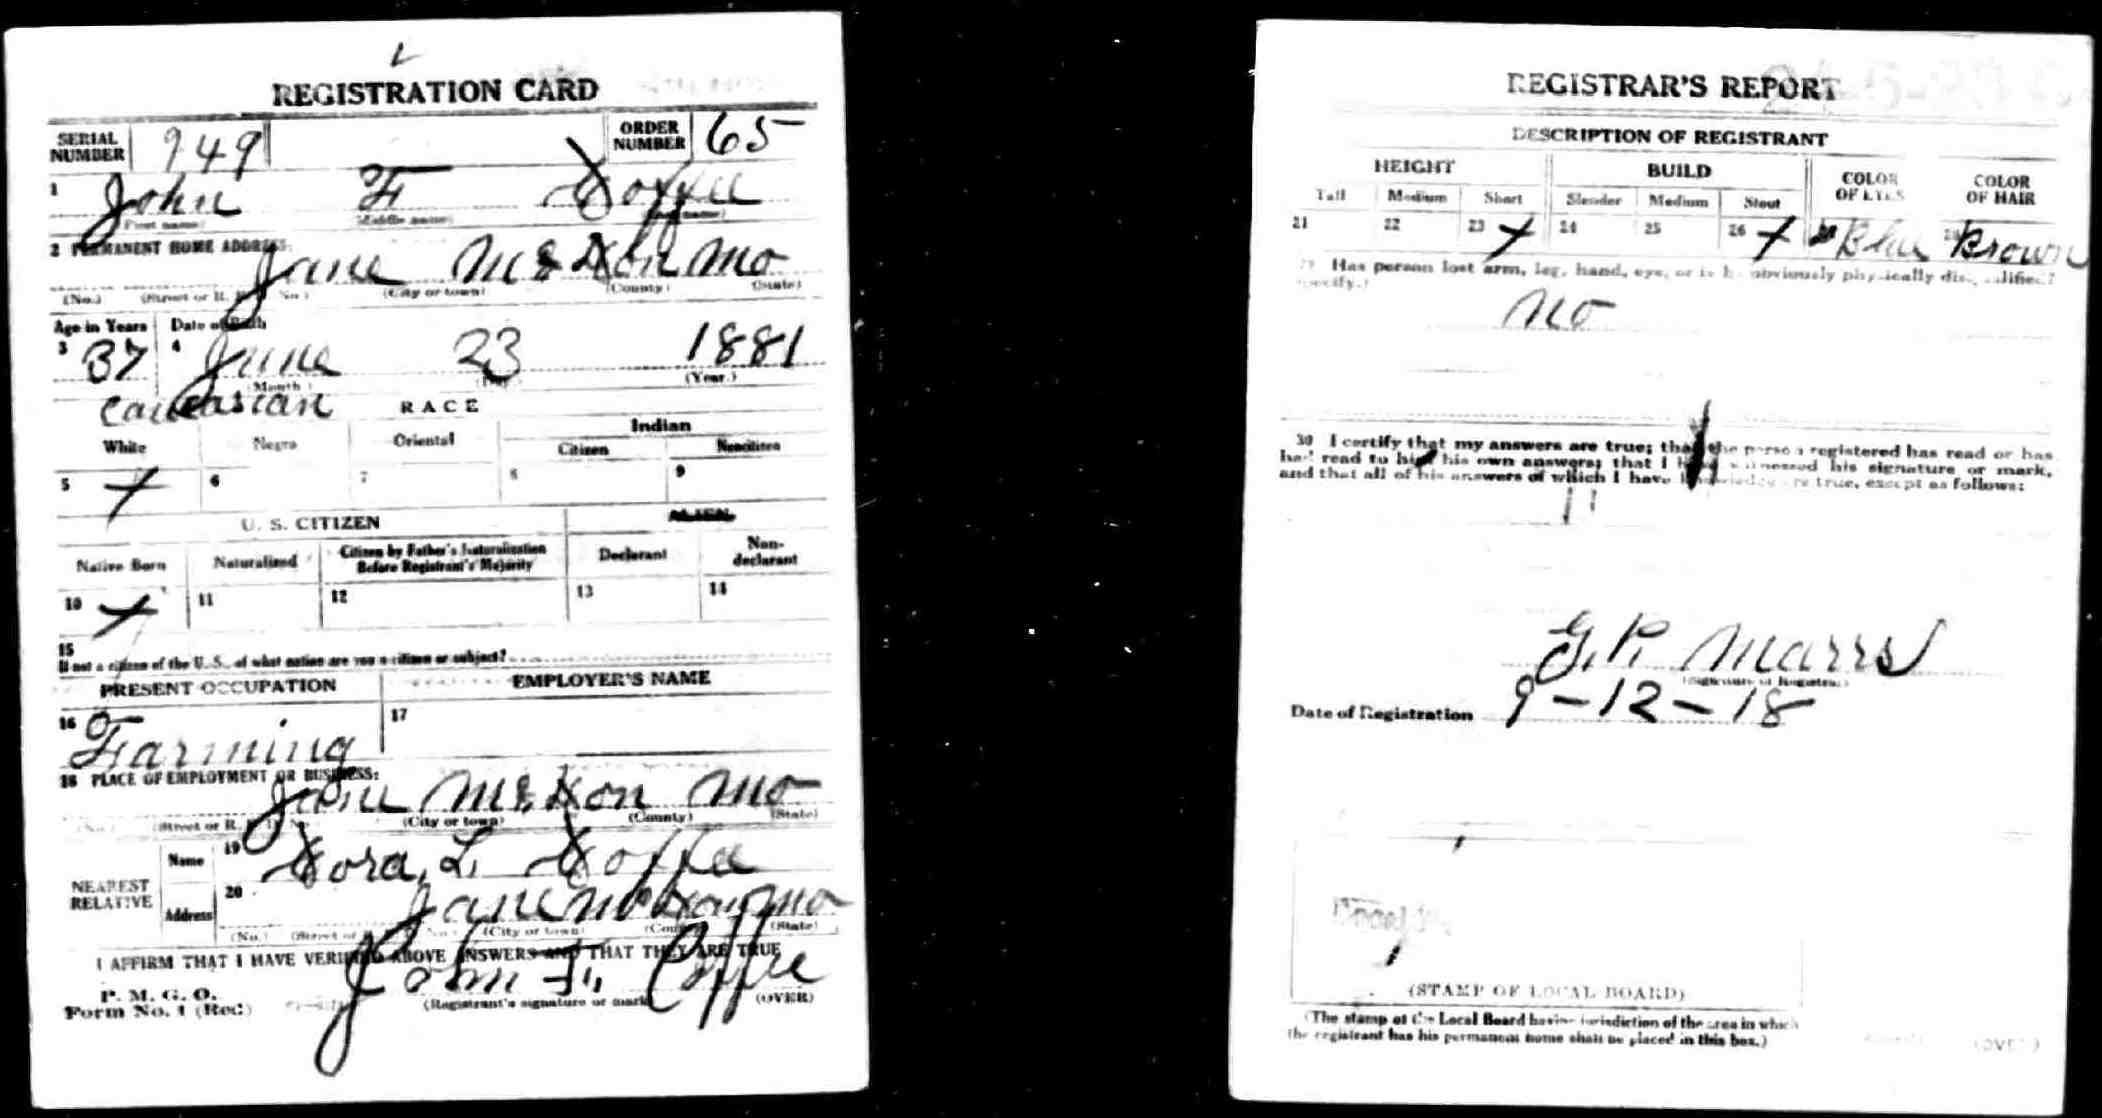 REGISTRATION CARD
SERIAL NUMBER 949 ORDER NUMBER 65
1 John F Coffee
(First name) (Middle name) (Last name)
2 PERMANENT HOME ADDRESS:
Jane McDon Mo
(No.) (Street or R. F. D. No.) (City or town) (County) (State)
Age in Years Date of Birth
3 37 4 June 23 1881
(Month) (Day) (Year.)
Caucasian RACE
White Negro Oriental Indian
Citizen Noncitizen
5 6 7 8 9
U. S. CITIZEN ALIEN
Native Born Naturalized Citizen by Father's Naturalization Before Registrant's Majority Declarant Non-declarant
10 11 12 13 14
15
If not a citizen of the U. S., of what nation are you a citizen or subject?
PRESENT OCCUPATION EMPLOYER'S NAME
16 Farming 17
18 PLACE OF EMPLOYMENT OR BUSINESS:
Jane McDon Mo
(No.) (Street or R. F. D. No.) (City or town) (County) (State)
NEAREST RELATIVE
Name 19 Dora L.
Address 20 Jane Mo
(No.) (Street or (City or town) (County) (State)
I AFFIRM THAT I HAVE VERIFIED ABOVE ANSWERS AND THAT THEY ARE TRUE
P. M. G. O.
Form No. 1 (Red) John F. Coffee
(Registrant's signature or mark) (OVER)
REGISTRAR'S REPORT
DESCRIPTION OF REGISTRANT
HEIGHT BUILD COLOR OF EYES COLOR OF HAIR
Tall Medium Short Slender Medium Stout
21 22 23 24 25 26 Blue Brown
29 Has person lost arm, leg, hand, eye, or is he obviously physically disqualified?
(Specify.)
No
30 I certify that my answers are true; that the person registered has read or has
had read to him his own answers; that I have witnessed his signature or mark,
and that all of his answers of which I have knowledge are true, except as follows:
G. P. Marrs
(Signature of Registrar)
Date of Registration 9-12-18
(STAMP OF LOCAL BOARD)
(The stamp of the Local Board having jurisdiction of the area in which
the registrant has his permanent home shall be placed in this box.)
(OVER)